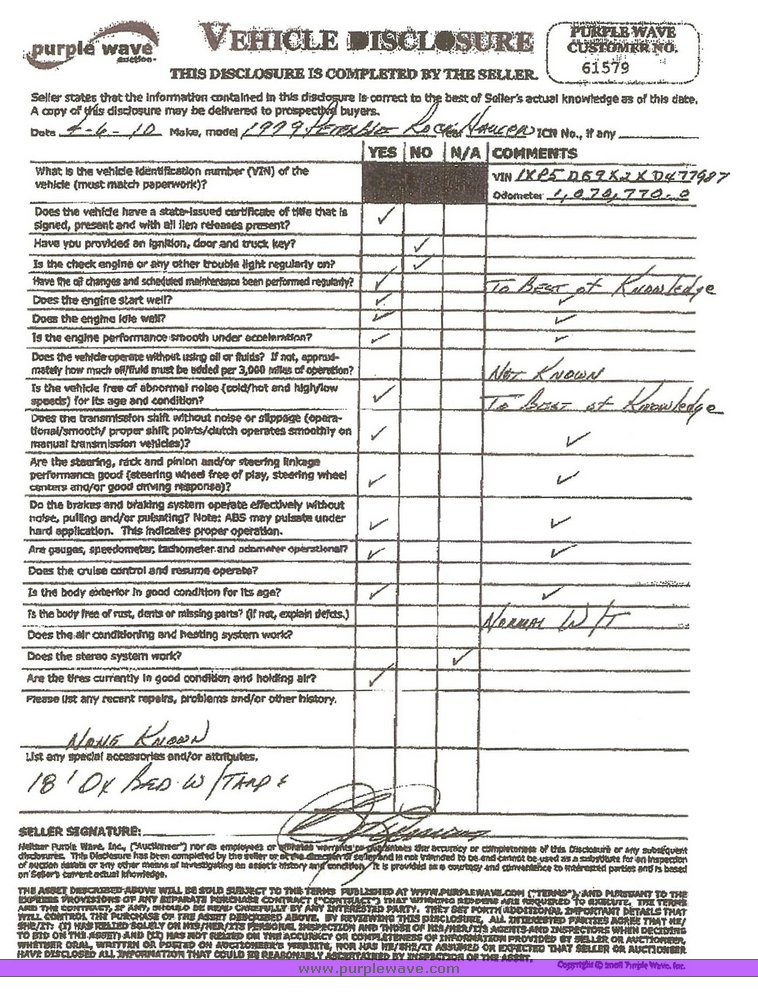 purple wave
auction
VEHICLE DISCLOSURE
PURPLE WAVE
CUSTOMER NO.
61579
THIS DISCLOSURE IS COMPLETED BY THE SELLER.
Seller states that the information contained in this disclosure is correct to the best of Seller's actual knowledge as of this date.
A copy of this disclosure may be delivered to prospective buyers.
Date 4-6-10 Make, model 1999 Rock Hauler ICN No., if any
YES NO N/A COMMENTS
What is the vehicle identification number (VIN) of the
vehicle (must match paperwork)?
VIN
Odometer 1,070,770.0
Does the vehicle have a state-issued certificate of title that is
signed, present and with all lien releases present?
Have you provided an ignition, door and truck key?
Is the check engine or any other trouble light regularly on?
Have the oil changes and scheduled maintenance been performed regularly? To Best of Knowledge
Does the engine start well?
Does the engine idle well?
Is the engine performance smooth under acceleration?
Does the vehicle operate without using oil or fluids? If not, approxi-
mately how much oil/fluid must be added per 3,000 miles of operation? Not Known
Is the vehicle free of abnormal noise (cold/hot and high/low
speeds) for its age and condition? To Best of Knowledge
Does the transmission shift without noise or slippage (opera-
tional/smooth/ proper shift points/clutch operates smoothly on
manual transmission vehicles)?
Are the steering, rack and pinion and/or steering linkage
performance good (steering wheel free of play, steering wheel
centers and/or good driving response)?
Do the brakes and braking system operate effectively without
noise, pulling and/or pulsating? Note: ABS may pulsate under
hard application. This indicates proper operation.
Are gauges, speedometer, tachometer and odometer operational?
Does the cruise control and resume operate?
Is the body exterior in good condition for its age?
Is the body free of rust, dents or missing parts? (If not, explain defects.) Normal W/T
Does the air conditioning and heating system work?
Does the stereo system work?
Are the tires currently in good condition and holding air?
Please list any recent repairs, problems and/or other history.
None Known
List any special accessories and/or attributes.
18' Ox Bed W/Tarp
SELLER SIGNATURE:
Neither Purple Wave, Inc., ("Auctioneer") nor its employees or affiliates warrants or guarantees the accuracy or completeness of this Disclosure or any subsequent
disclosures. This Disclosure has been completed by the seller or at the direction of seller and is not intended to be and cannot be used as a substitute for an inspection
of auction assets or any other means of investigating an asset's history and condition. It is provided as a courtesy and convenience to interested parties and is based
on Seller's current actual knowledge.
THE ASSET DESCRIBED ABOVE WILL BE SOLD SUBJECT TO THE TERMS PUBLISHED AT WWW.PURPLEWAVE.COM ("TERMS"), AND PURSUANT TO THE
EXPRESS PROVISIONS OF ANY SEPARATE PURCHASE CONTRACT ("CONTRACT") THAT WINNING BIDDERS ARE REQUIRED TO EXECUTE. THE TERMS
AND THE CONTRACT, IF ANY, SHOULD BE READ CAREFULLY BY ANY INTERESTED PARTY. THEY SET FORTH ADDITIONAL IMPORTANT DETAILS THAT
WILL CONTROL THE PURCHASE OF THE ASSET DESCRIBED ABOVE. BY REVIEWING THIS DISCLOSURE, ALL INTERESTED PARTIES AGREE THAT HE/
SHE/IT: (I) HAS RELIED SOLELY ON HIS/HER/ITS PERSONAL INSPECTION AND THOSE OF HIS/HER/ITS AGENTS AND INSPECTORS WHEN DECIDING
TO BID ON THE ASSET; AND (II) HAS NOT RELIED ON THE ACCURACY OR COMPLETENESS OF INFORMATION PROVIDED BY SELLER OR AUCTIONEER,
WHETHER ORAL, WRITTEN OR POSTED ON AUCTIONEER'S WEBSITE, NOR HAS HE/SHE/IT ASSUMED OR EXPECTED THAT SELLER OR AUCTIONEER
HAVE DISCLOSED ALL INFORMATION THAT COULD BE REASONABLY ASCERTAINED BY INSPECTION OF THE ASSET.
Copyright © 2008 Purple Wave, Inc.
www.purplewave.com